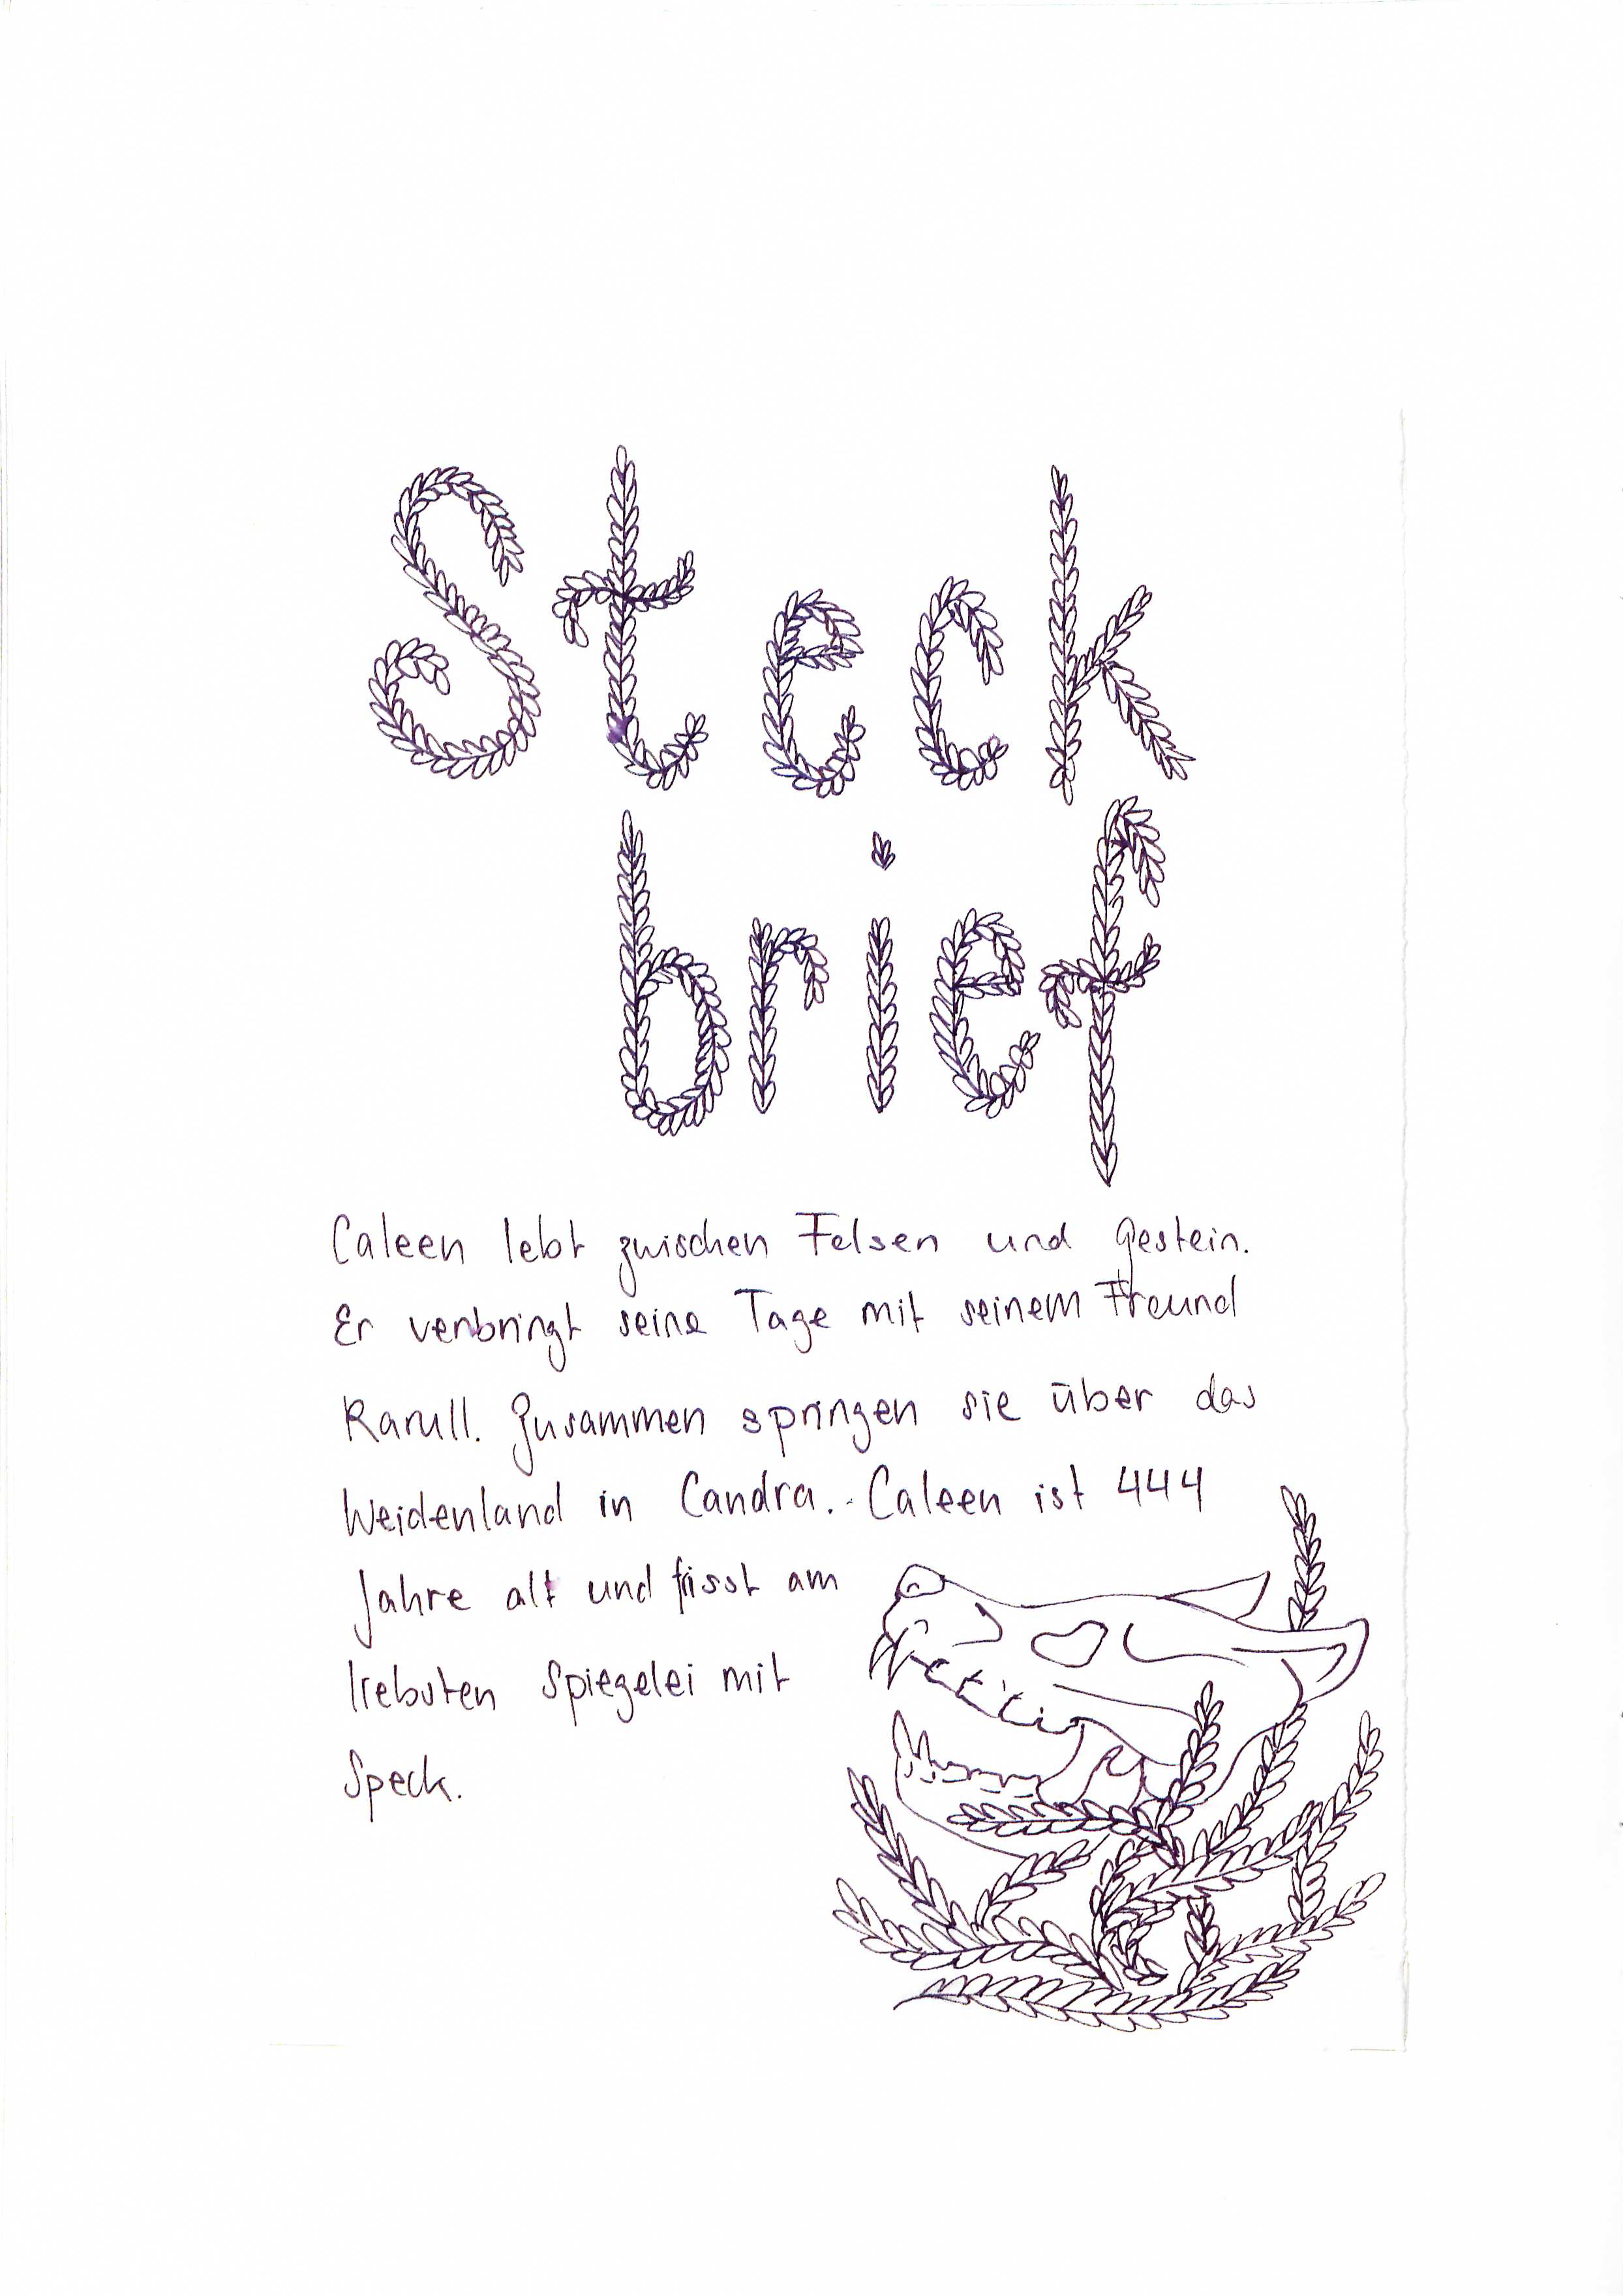 Steck
brief
Caleen lebt zwischen Felsen und Gestein.
Er verbringt seine Tage mit seinem Freund
Rarull. Zusammen springen sie über das
Weidenland in Candra. Caleen ist 444
Jahre alt und frisst am
liebsten Spiegelei mit
Speck.